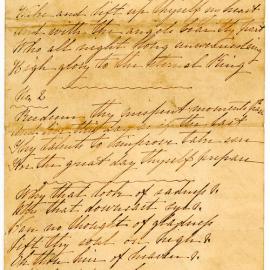 Wake and lift up thyself my heart
And with the angels bear thy part
Who all night long unwearied sing
High glory to the Eternal King
No 2
Redeem thy mispent moments
the last
Thy talents to improve take care
For the great day thyself prepare
Why that look of sadness
Why that downcast eye
Can no thought of gladness
Lift thy soul on high
Oh thou heir of heaven